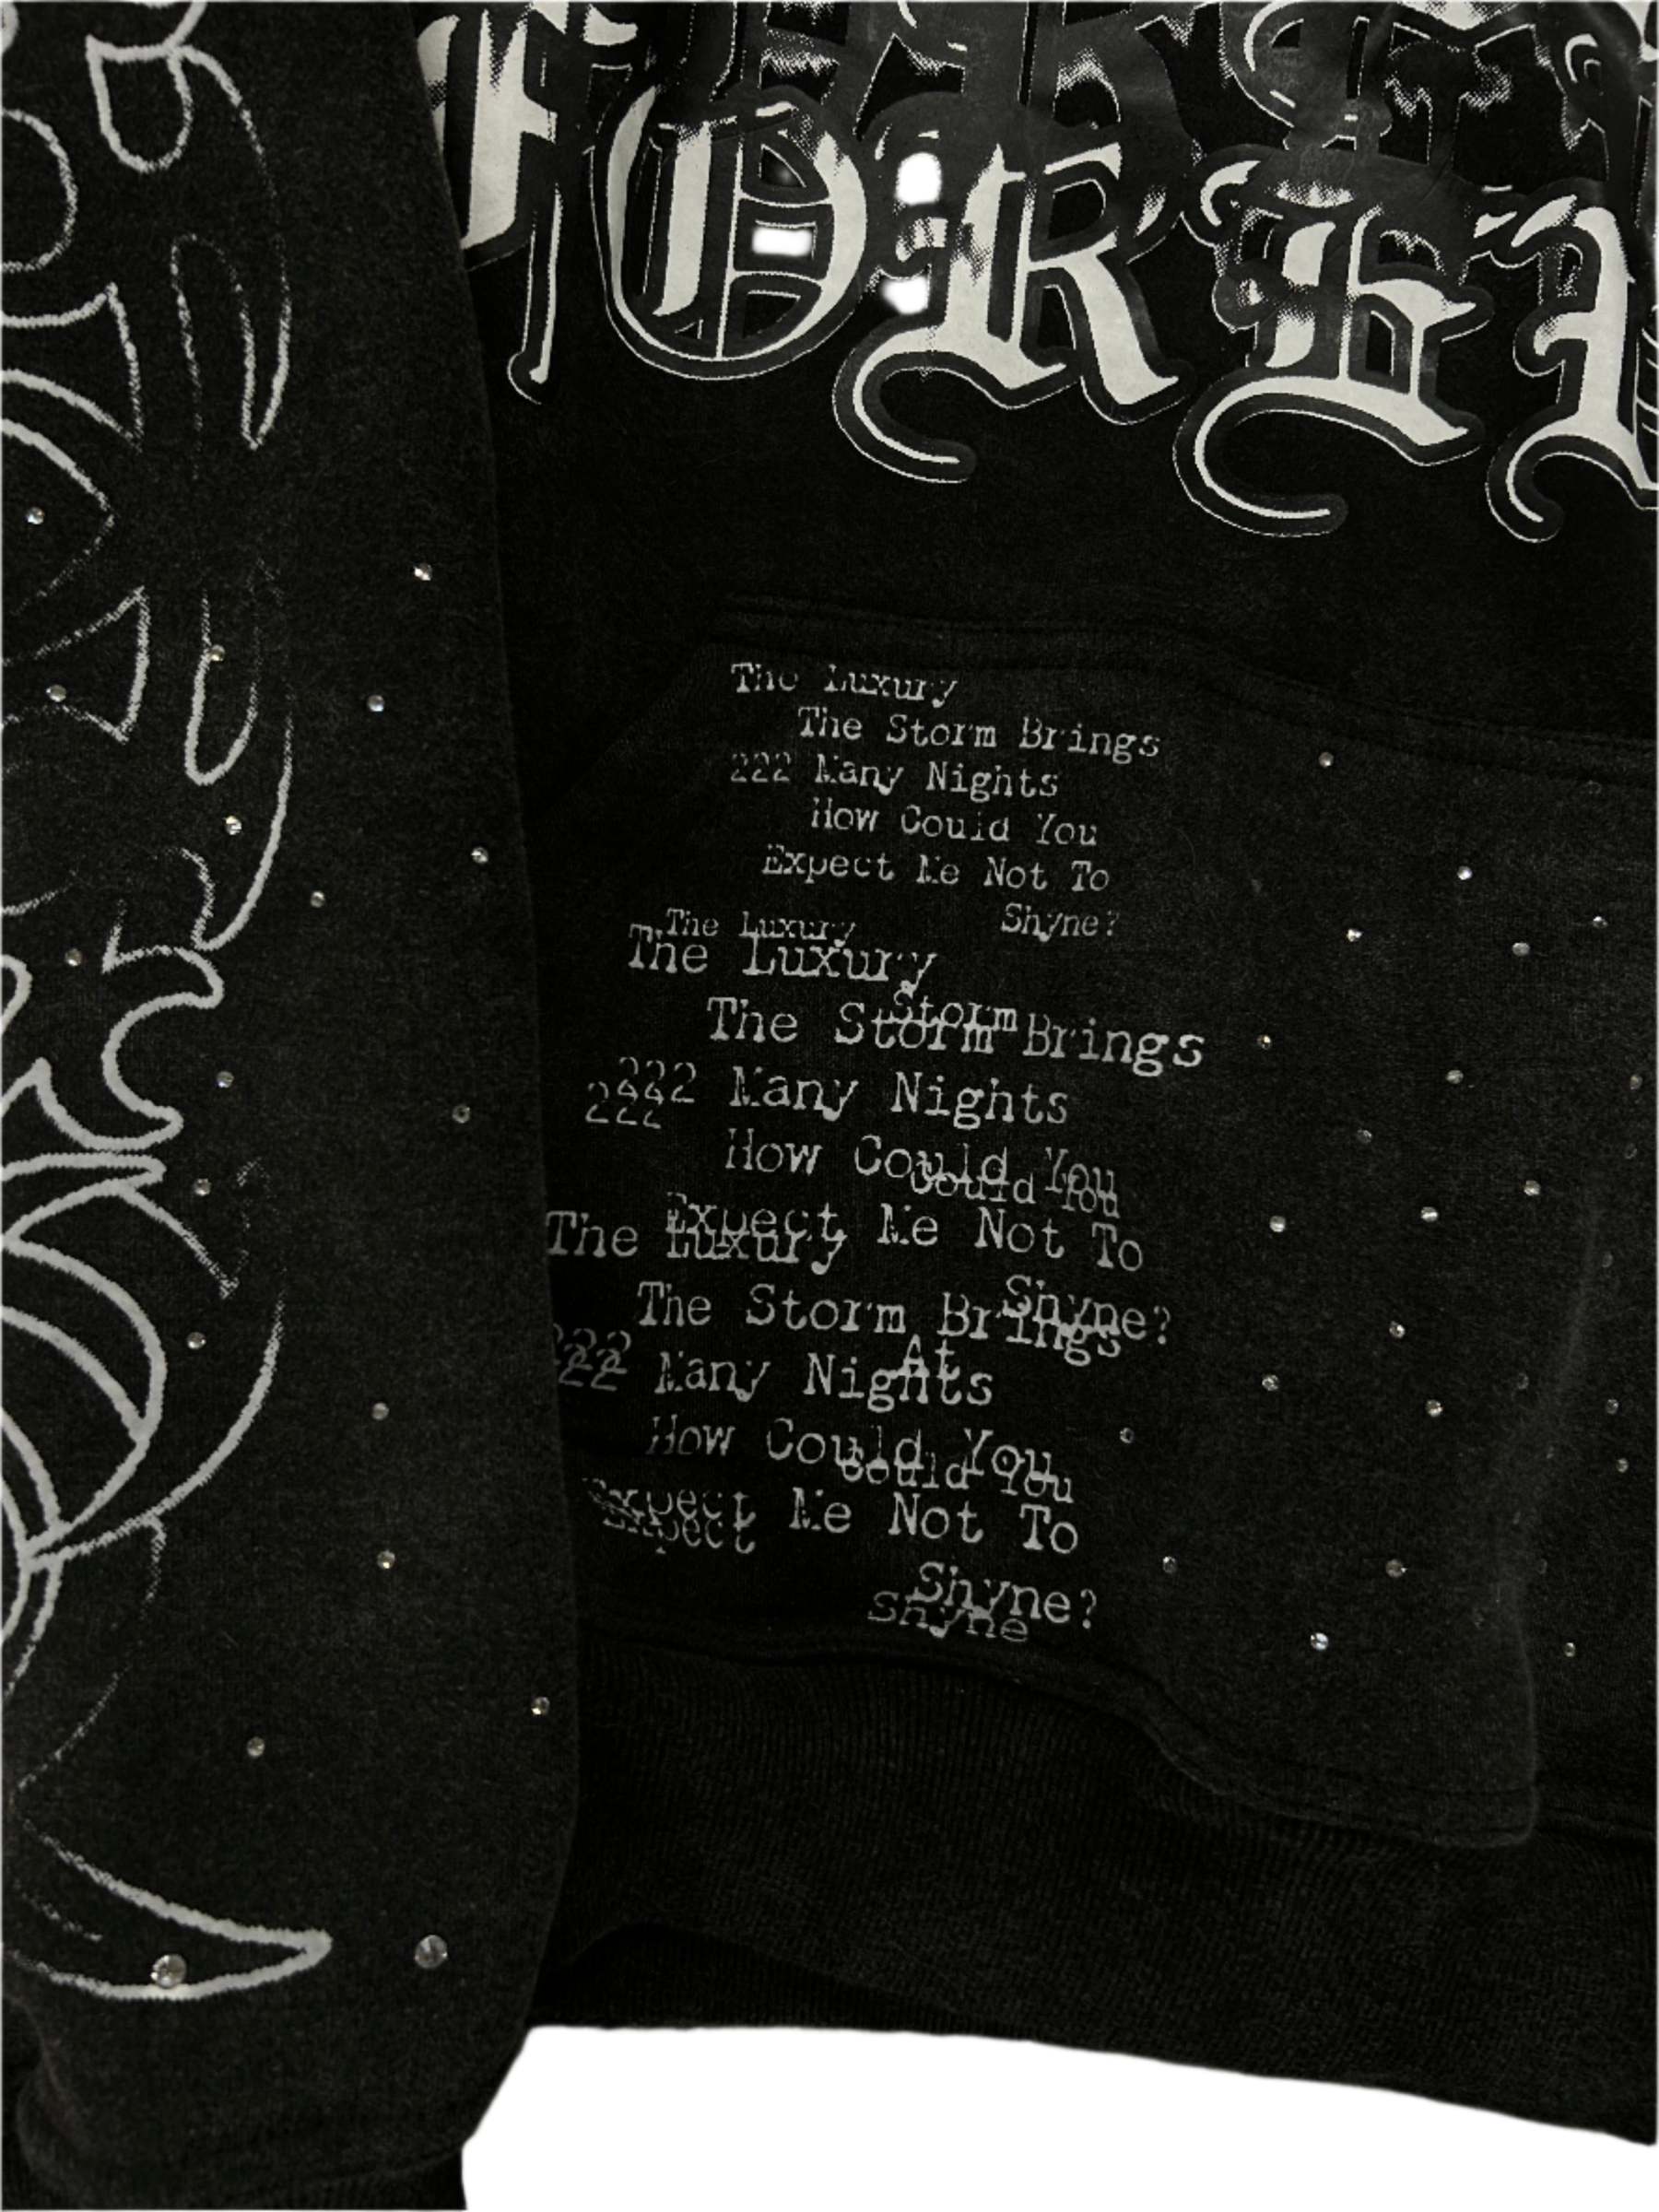 The Luxury
The Storm Brings
222 Many Nights
How Could You
Expect Me Not To
Shyne?
The Luxury
The Luxury
Storm
The Storm Brings
222 Many Nights
222
How Could You
Could You
Expect Me Not To
The Luxury
Shyne?
The Storm Brings
At
222
222 Many Nights
How Could You
Could You
Expect Me Not To
Expect
Shyne?
Shyne